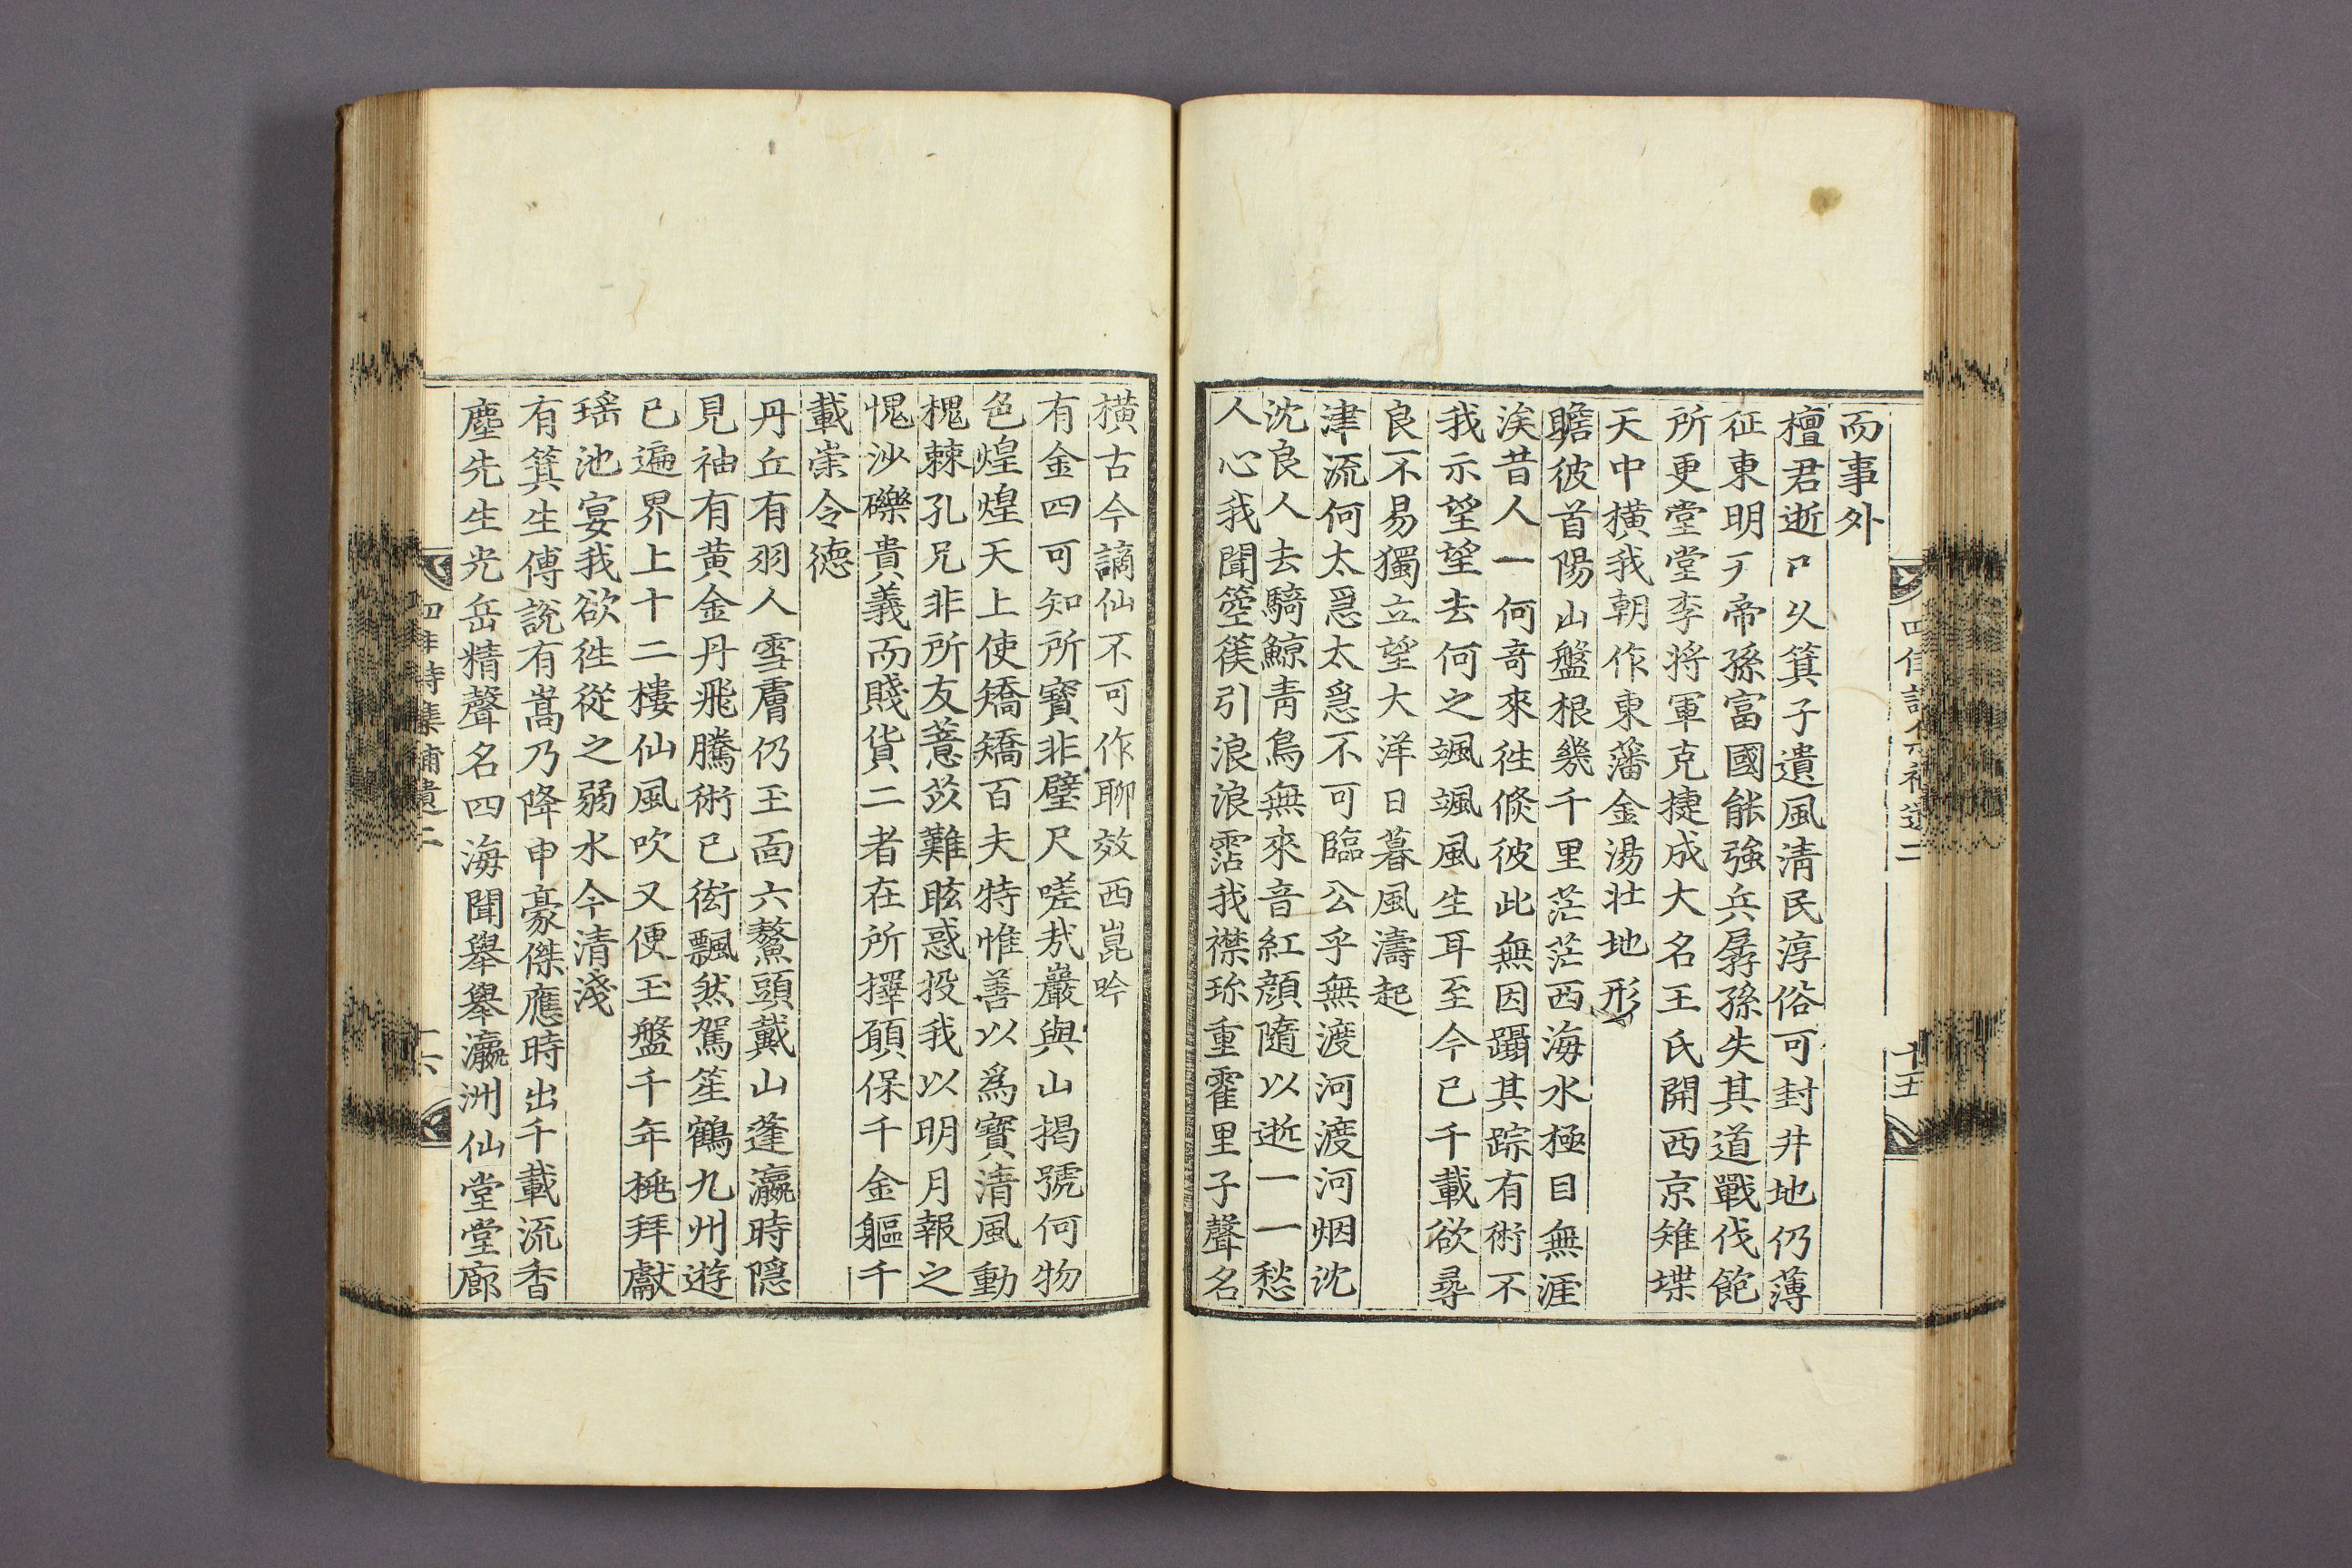 而事外
檀君逝𠃍乆箕子遺風淸民淳俗可封井地仍薄
征東明亐帝孫富國能強兵孱孫失其道戰伐飽
所更堂堂李將軍克捷成大名王氏開西京雉堞
天中橫我朝作東藩金湯壯地形
瞻彼首陽山盤根幾千里茫茫西海水極目無涯
涘昔人一何竒來徃倐彼此無因躡其踪有術不
我示望望去何之颯颯風生耳至今已千載欲尋
良不易獨立望大洋日暮風濤起
津流何太急太急不可臨公乎無渡河渡河烟沈
沈良人去騎鯨靑鳥無來音紅顔隨以逝一一愁
人心我聞箜篌引浪浪霑我襟珎重霍里子聲名
十五
橫古今謫仙不可作聊效西崑吟
有金四可知所寳非璧尺嗟㢤巖與山揭號何物
色煌煌天上使矯矯百夫特惟善以爲寳淸風動
槐棘孔兄非所友薏苡難眩惑投我以明月報之
愧沙礫貴義而賤貨二者在所擇願保千金軀千
載崇令德
丹丘有羽人雪膚仍玉面六鰲頭戴山蓬瀛時隠
見袖有黃金丹飛騰術已衒飄然駕笙鶴九州遊
已遍界上十二樓仙風吹又便玉盤千年桃拜獻
瑶池宴我欲徃從之弱水今淸淺
有箕生傅說有嵩乃降申豪傑應時出千載流香
塵先生光岳精聲名四海聞舉舉瀛洲仙堂堂廊
四佳詩集補遺二